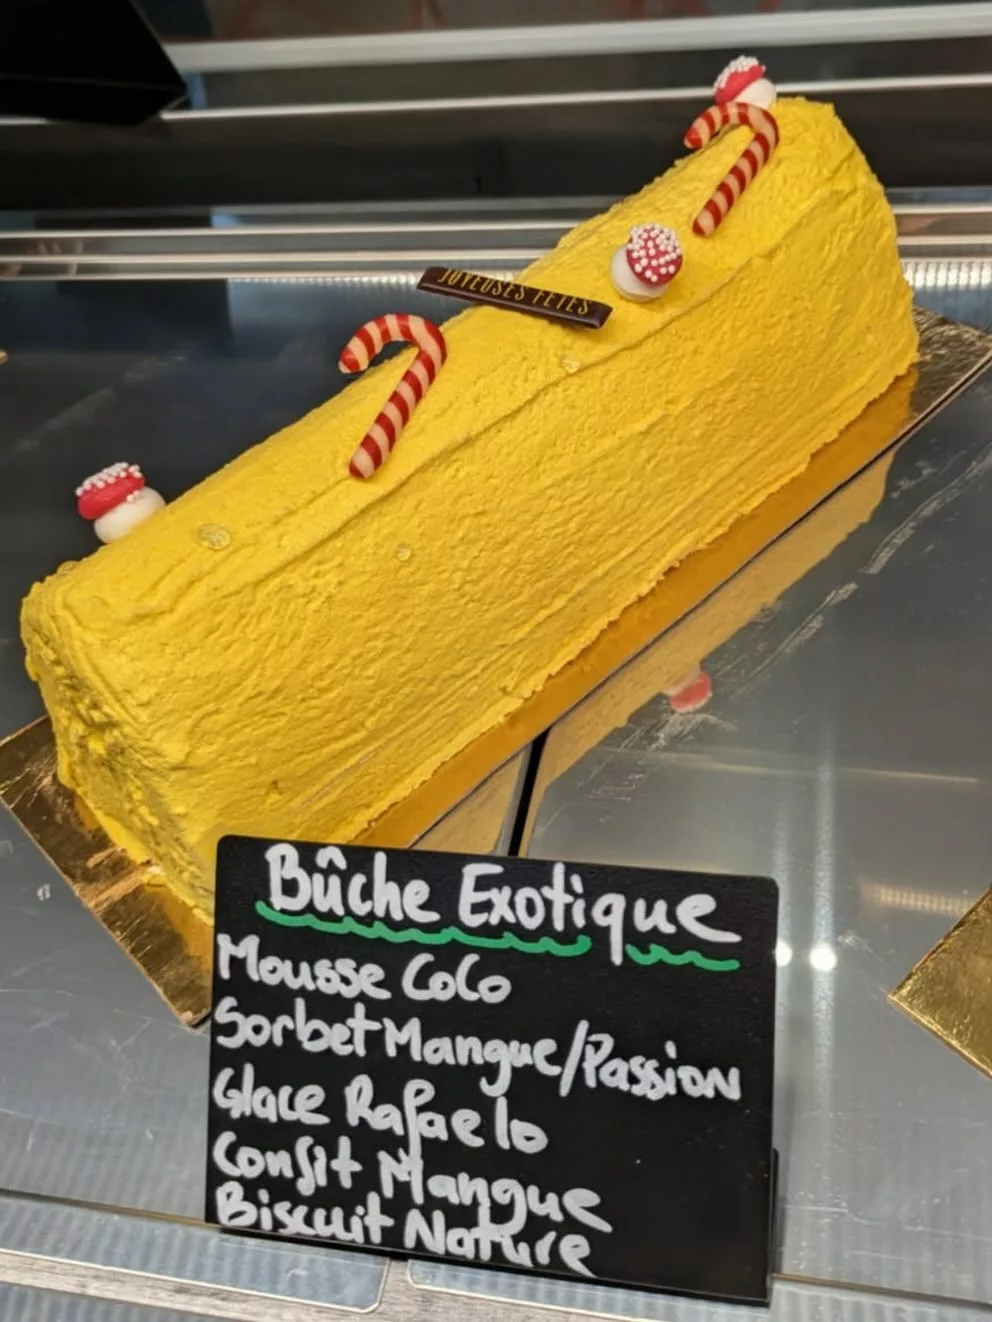 JOYEUSES FÊTES
Bûche Exotique
Mousse CoCo
Sorbet Mangue/Passion
Glace Rafaelo
Confit Mangue
Biscuit Nature